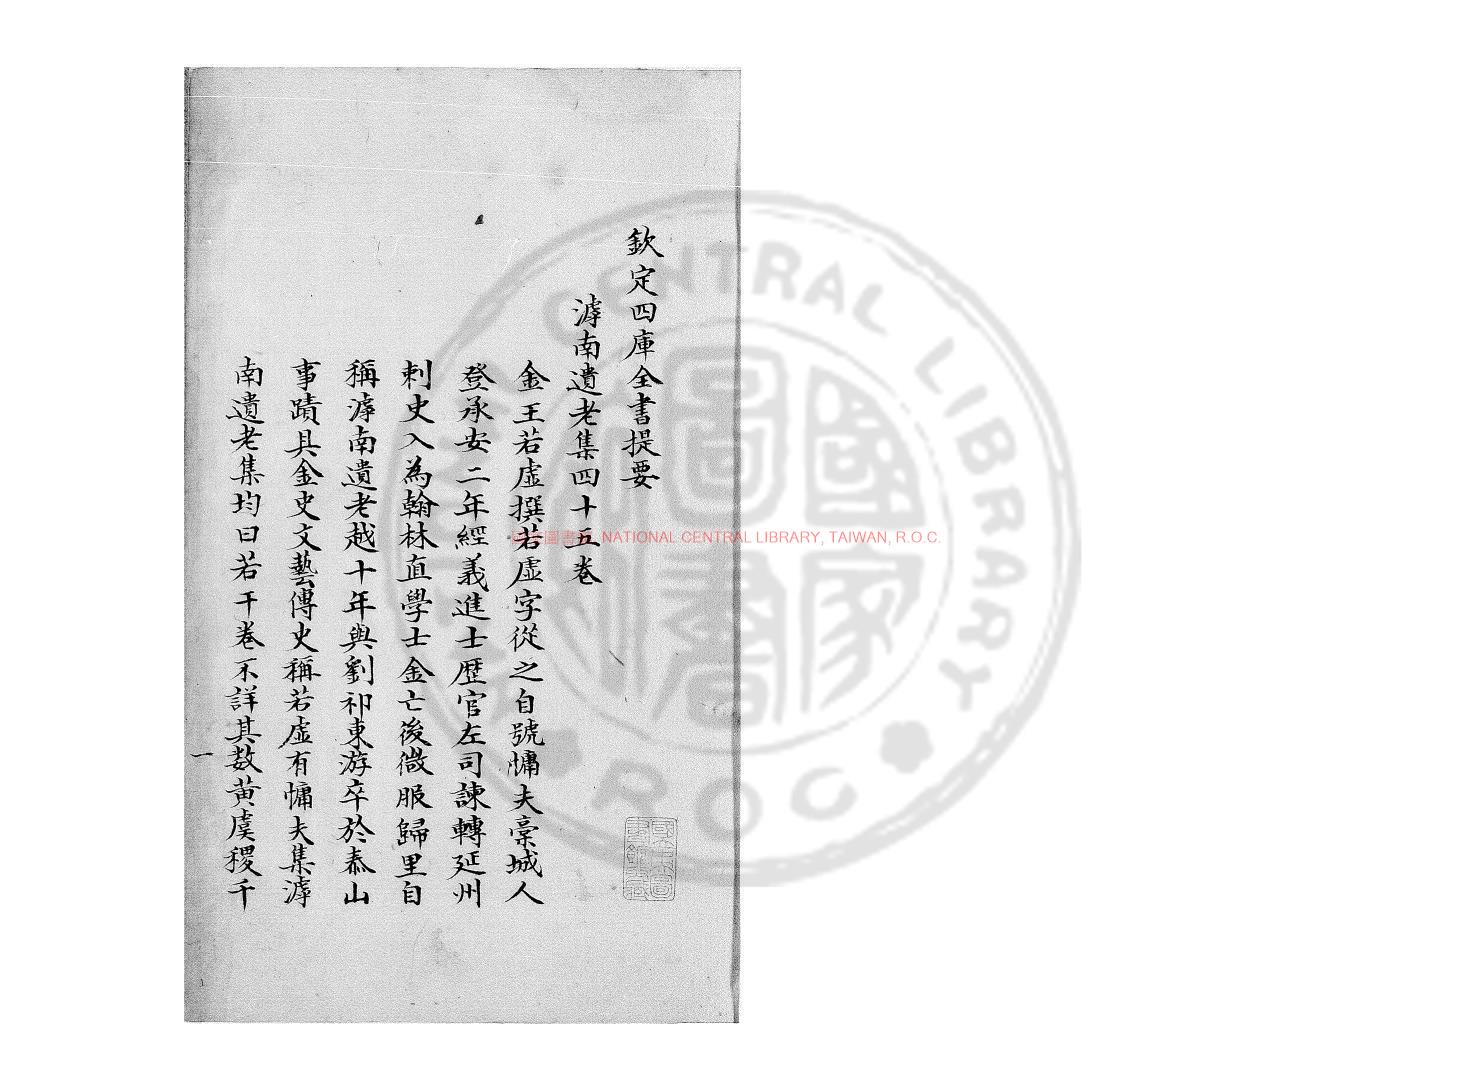 欽定四庫全書提要
滹南遺老集四十五卷
金王若虛撰若虛字從之自號慵夫稾城人
登承安二年經義進士歷官左司諫轉延州
刺史入為翰林直學士金亡後微服歸里自
稱滹南遺老越十年與劉祁東游卒於泰山
事蹟具金史文藝傳史稱若虛有慵夫集滹
南遺老集均曰若干卷不詳其數黃虞稷千
一
NATIONAL CENTRAL LIBRARY, TAIWAN, R.O.C.
CENTRAL LIBRARY
R O C
國家圖書